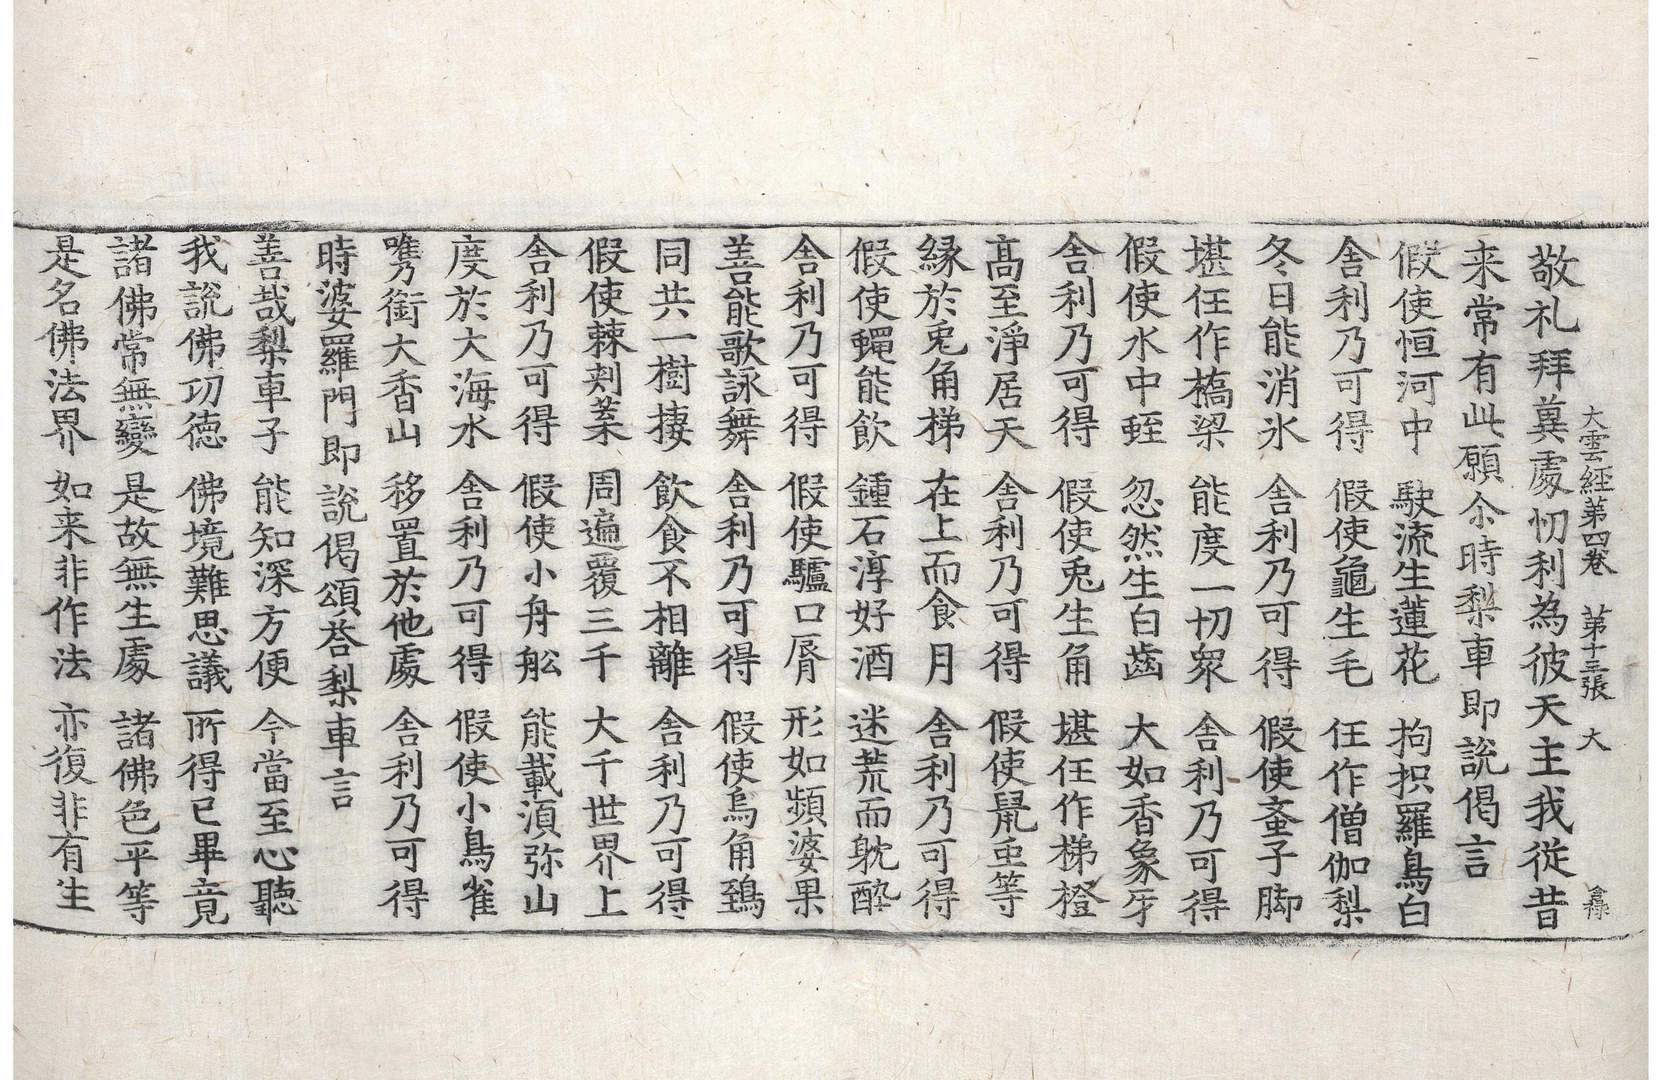 大雲經第四卷 第十三張 大
敬礼拜兾處忉利為彼天主我從昔
来常有此願尒時梨車即說偈言
假使恒河中 駛流生蓮花 拘抧羅鳥白
舍利乃可得 假使龜生毛 任作僧伽梨
冬日能消氷 舍利乃可得 假使蚉子脚
堪任作橋梁 能度一切衆 舍利乃可得
假使水中蛭 忽然生白齒 大如香象牙
舍利乃可得 假使兎生角 堪任作梯橙
髙至淨居天 舍利乃可得 假使鼠䖝等
縁於兎角梯 在上而食月 舍利乃可得
假使蠅能飲 鍾石淳好酒 迷荒而躭醉
舍利乃可得 假使驢口脣 形如頻婆果
善能歌詠舞 舍利乃可得 假使烏角鵄
同共一樹捿 飲食不相離 舍利乃可得
假使棘刾葉 周遍覆三千 大千世界上
舍利乃可得 假使小舟舩 能載湏弥山
度於大海水 舍利乃可得 假使小鳥雀
㗻銜大香山 移置於他處 舍利乃可得
時婆羅門即說偈頌荅梨車言
善哉梨車子 能知深方便 今當至心聽
我說佛功德 佛境難思議 所得已畢竟
諸佛常無變 是故無生處 諸佛色平等
是名佛法界 如来非作法 亦復非有生